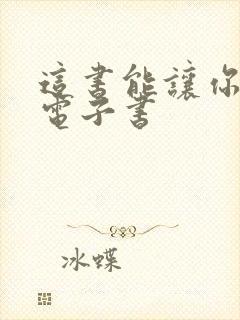 這書能讓你
電子書
冰蝶